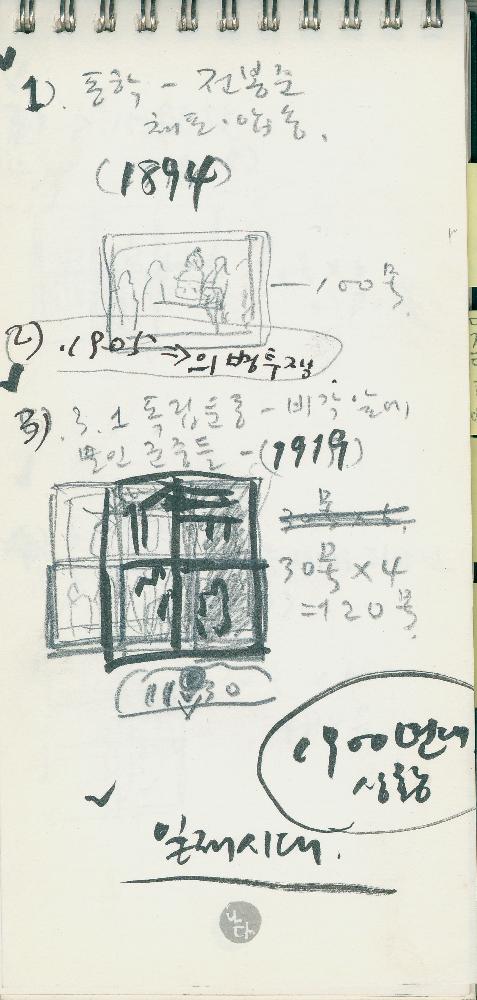 1). 동학 - 전봉준
체포·압송.
(1894)
- 100호
2) .1905 ⇒ 의병투쟁
3). 3.1 독립운동 - 비각 앞에
모인 군중들 - (1919)
30호 × 4
⇒ 120호
1900년대
상황
일제시대.
나다